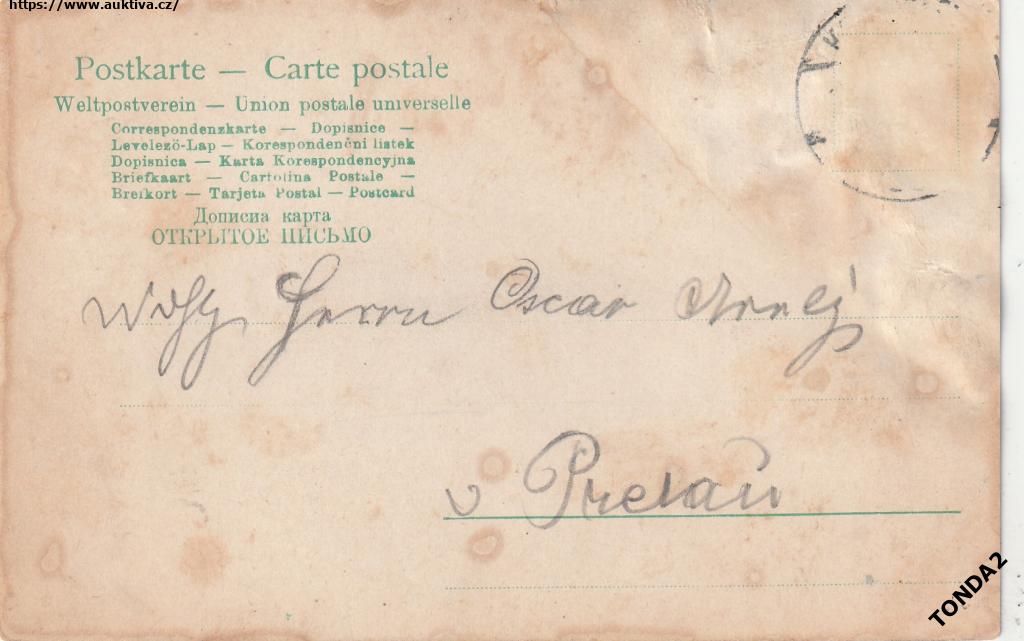 https://www.auktiva.cz/
Postkarte — Carte postale
Weltpostverein — Union postale universelle
Correspondenzkarte — Dopisnice —
Levelező-Lap — Korespondenčni listek
Dopisnica — Karta Korespondencyjna
Briefkaart — Cartolina Postale —
Brefkort — Tarjeta Postal — Postcard
Дописна карта
ОТКРЫТОЕ ПИСЬМО
Herrn Oscar
v
TONDA2